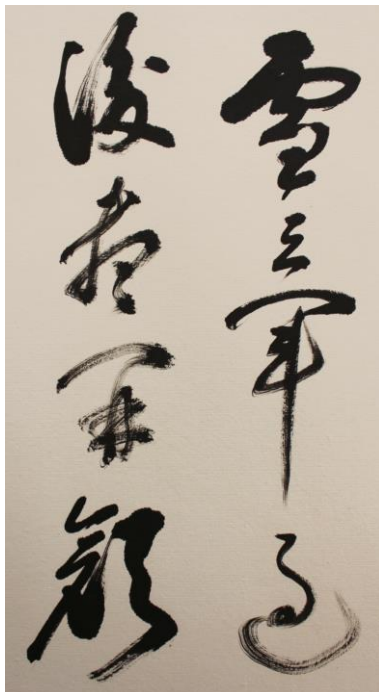 雪三軍過
後盡開顏